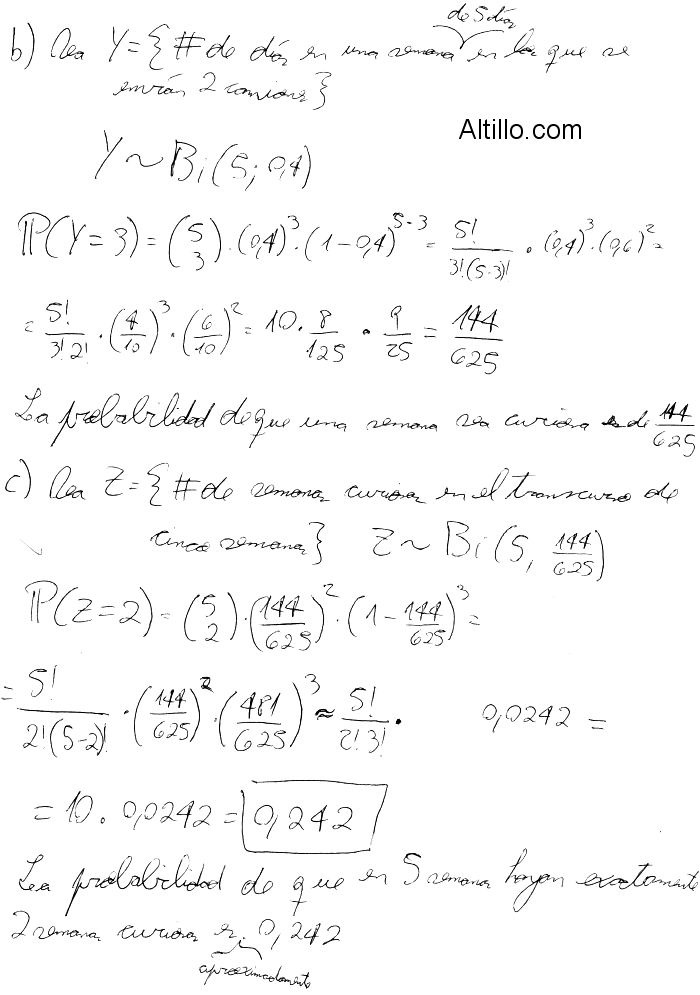 de 5 días
b) Sea Y = { # de días en una semana en los que se
envían 2 camiones }
Altillo.com
Y ~ Bi(5; 0,4)
ℙ(Y=3) = (5 3) . (0,4)^3 . (1-0,4)^5-3 = 5!/3!(5-3)! . (0,4)^3 . (0,6)^2 =
= 5!/3!2! . (4/10)^3 . (6/10)^2 = 10 . 8/125 . 9/25 = 144/625
La probabilidad de que una semana sea curiosa es de 144/625
c) Sea Z = { # de semanas curiosas en el transcurso de
cinco semanas } Z ~ Bi(5, 144/625)
ℙ(Z=2) = (5 2) . (144/625)^2 . (1 - 144/625)^3 =
= 5!/2!(5-2)! . (144/625)^2 . (481/625)^3 ≈ 5!/2!3! . 0,0242 =
= 10 . 0,0242 = 0,242
La probabilidad de que en 5 semanas hayan exactamente
2 semanas curiosas es 0,242
aproximadamente